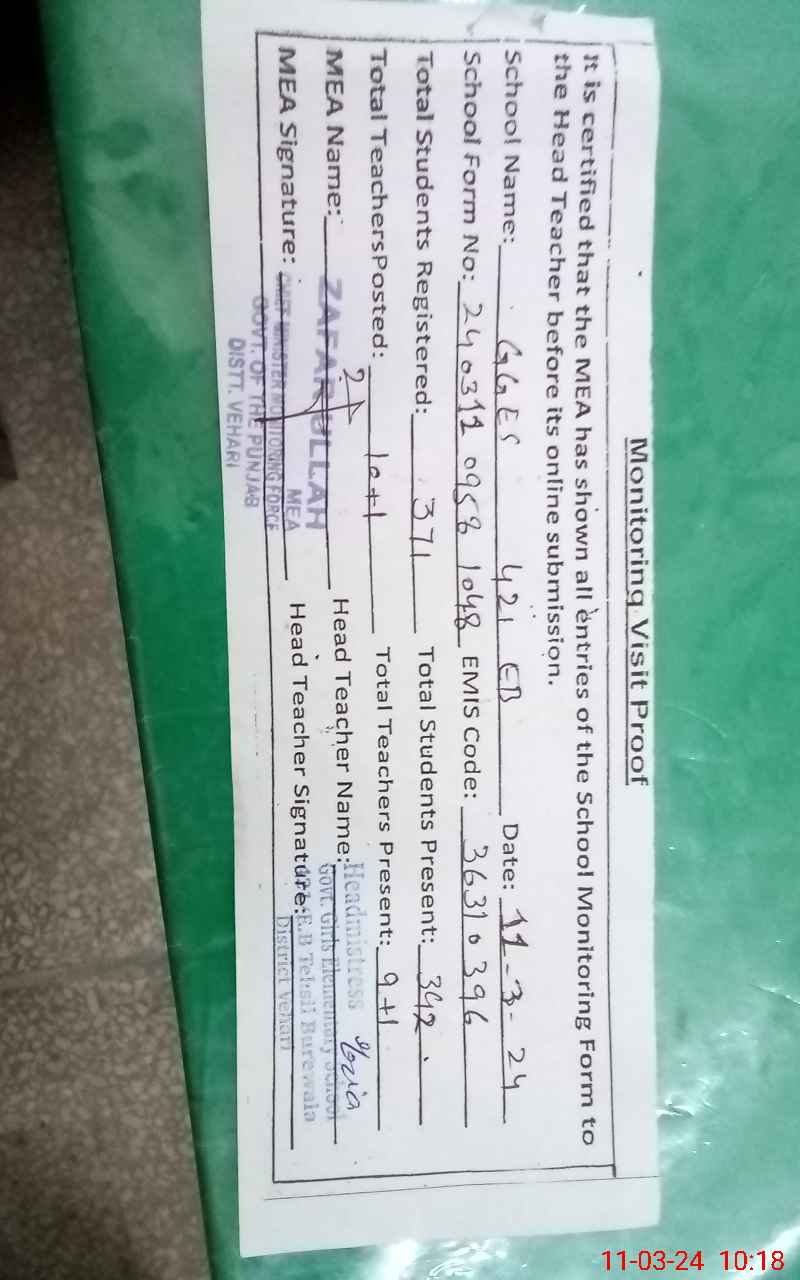 Monitoring Visit Proof
It is certified that the MEA has shown all entries of the School Monitoring Form to
the Head Teacher before its online submission.
School Name: GGES 421 EB Date: 11-3-24
School Form No: 240311 0958 1048 EMIS Code: 36310396
Total Students Registered: 371 Total Students Present: 342
Total TeachersPosted: 10+1 Total Teachers Present: 9+1
MEA Name: ZAFAR ULLAH Head Teacher Name: Headmistress
MEA
Govt. Girls Elementary School
MEA Signature: CHIEF MINISTER MONITORING FORCE Head Teacher Signature: E.B Tehsil Burewala
GOVT. OF THE PUNJAB District Vehari
DISTT. VEHARI
11-03-24 10:18